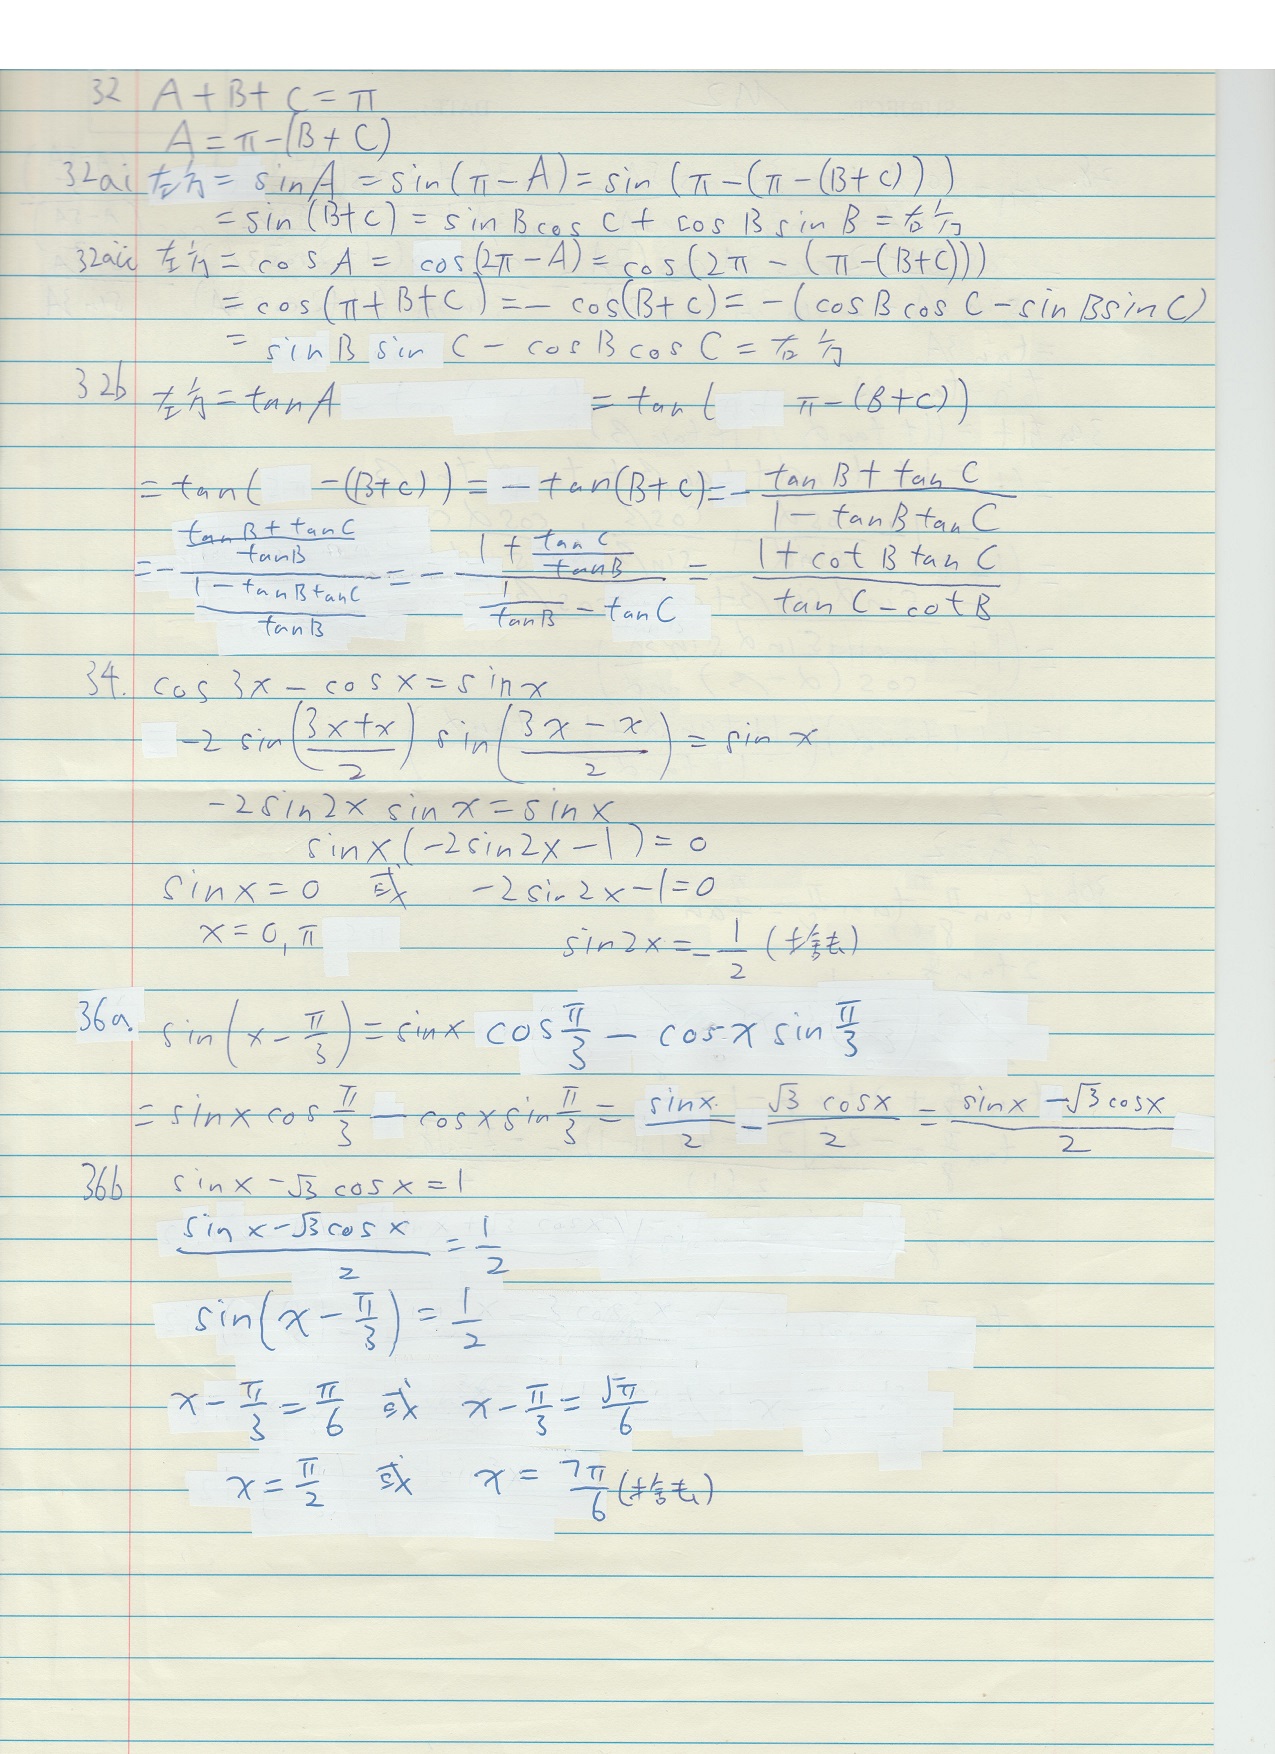 32 A + B + C = π
A = π - (B + C)
32ai 左方 = sin A = sin(π - A) = sin (π - (π - (B+C)))
= sin (B+C) = sin B cos C + cos B sin B = 右方
32aii 左方 = cos A = cos(2π - A) = cos(2π - (π - (B+C)))
= cos(π + B + C) = - cos(B+C) = -(cos B cos C - sin B sin C)
= sin B sin C - cos B cos C = 右方
32b 左方 = tan A = tan( π - (B+C))
= tan( -(B+C)) = - tan(B+C) = - (tan B + tan C)/(1 - tan B tan C)
= - ((tan B + tan C)/tan B)/((1 - tan B tan C)/tan B) = - (1 + tan C/tan B)/(1/tan B - tan C) = (1 + cot B tan C)/(tan C - cot B)
34. cos 3x - cos x = sin x
-2 sin((3x+x)/2) sin((3x - x)/2) = sin x
-2 sin 2x sin x = sin x
sin x (-2 sin 2x - 1) = 0
sin x = 0 或 -2 sin 2x - 1 = 0
x = 0, π sin 2x = - 1/2 (捨去)
36a. sin(x - π/3) = sin x cos π/3 - cos x sin π/3
= sin x cos π/3 - cos x sin π/3 = sin x/2 - √3 cos x/2 = (sin x - √3 cos x)/2
36b sin x - √3 cos x = 1
(sin x - √3 cos x)/2 = 1/2
sin(x - π/3) = 1/2
x - π/3 = π/6 或 x - π/3 = 5π/6
x = π/2 或 x = 7π/6 (捨去)